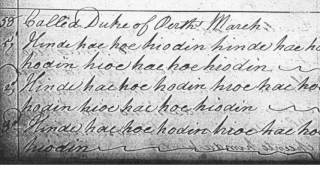 58 Called Duke of Perth's March
1. Hinde hae hoe hiodin hinde hae ho
hodin hioe hae hoe hiodin
2. Hinde hae hoe hodin hioe hae hoe
hodin hioe hae hoe hiodin
3. Hinde hae hoe hodin hioe hae hoe
hiodin